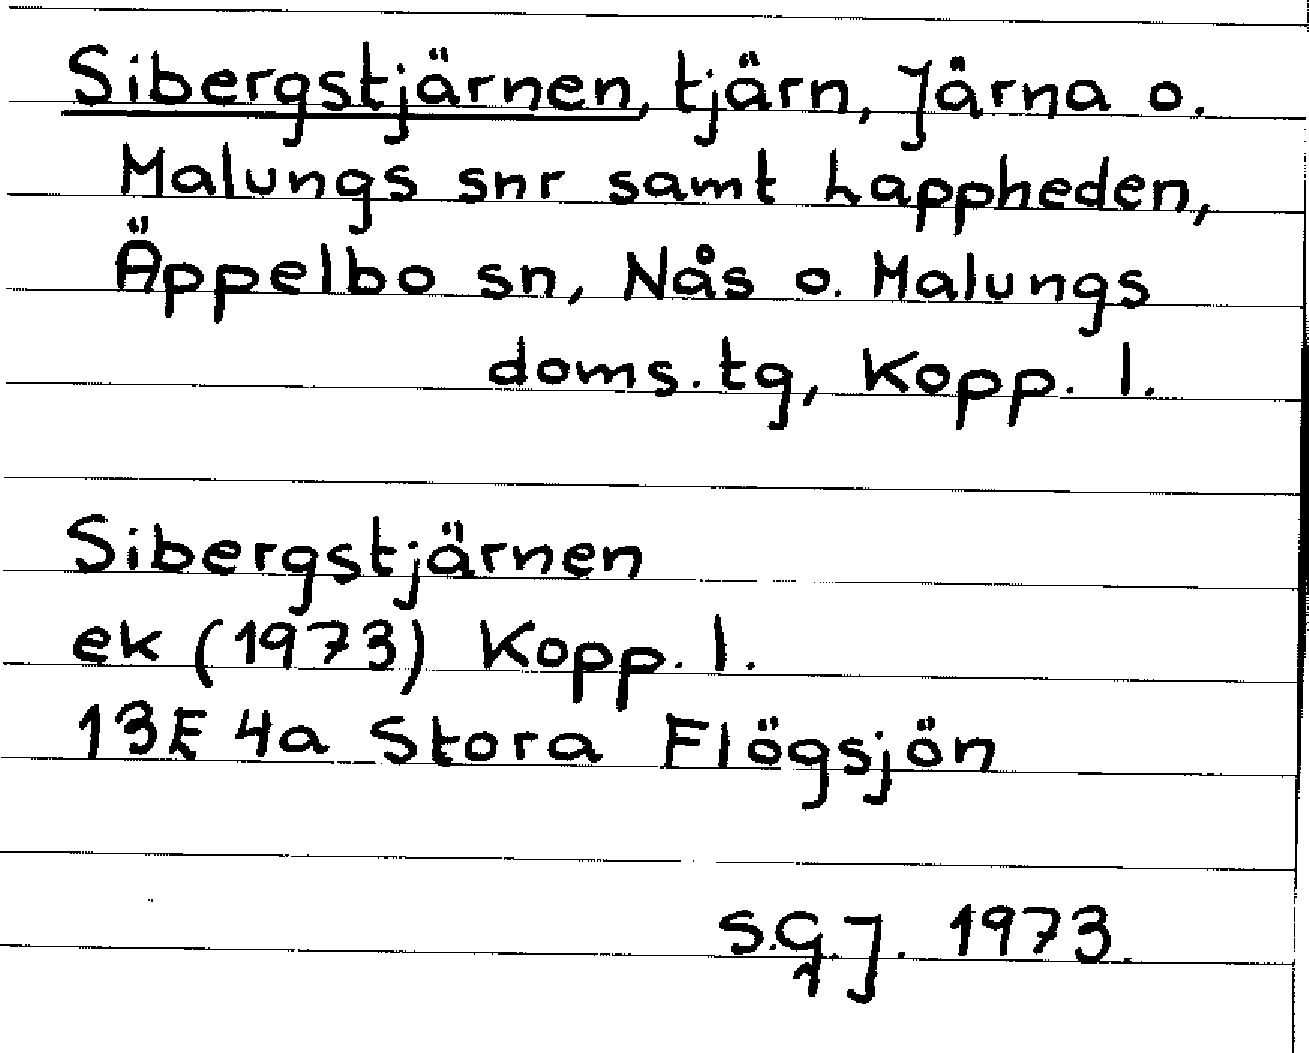 Sibergstjärnen, tjärn, Järna o.
Malungs snr samt Lappheden,
Äppelbo sn, Nås o. Malungs
doms.tg, Kopp. l.
Sibergstjärnen
ek (1973) Kopp. l.
13E 4a Stora Flögsjön
S.G.J. 1973.